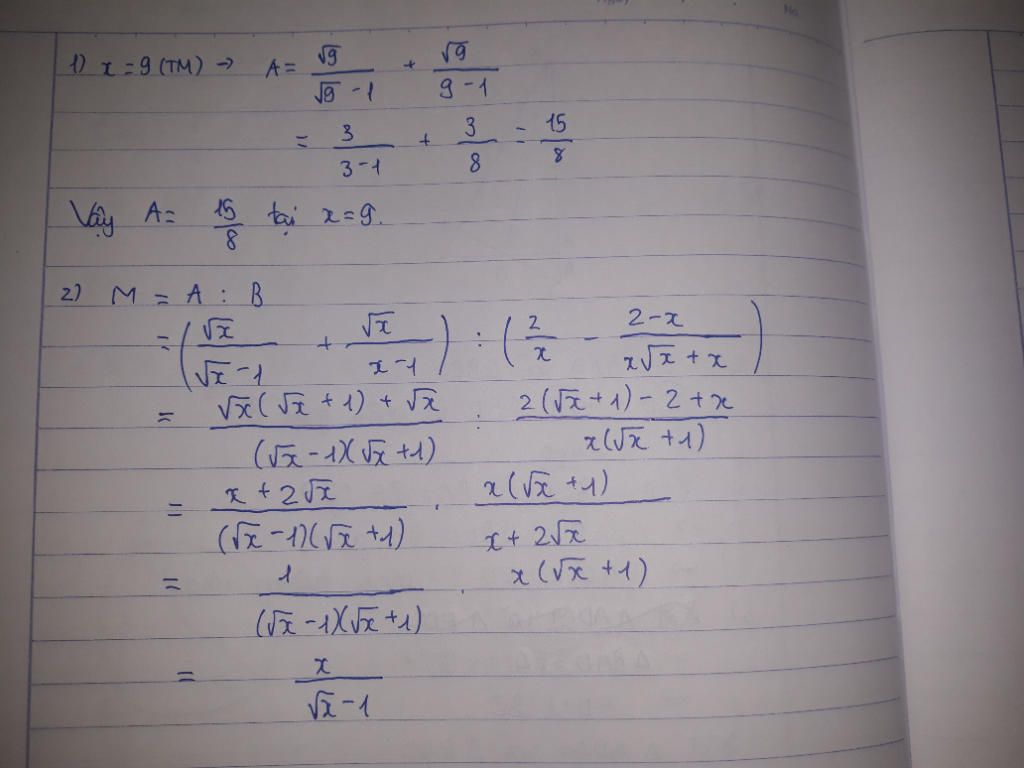 1) x = 9 (TM) → A = √9/(√9 - 1) + √9/(9 - 1)
= 3/(3 - 1) + 3/8 = 15/8
Vậy A = 15/8 tại x = 9.
2) M = A : B
= (√x/(√x - 1) + √x/(x - 1)) : (2/x - (2 - x)/(x√x + x))
= (√x(√x + 1) + √x)/((√x - 1)(√x + 1)) : (2(√x + 1) - 2 + x)/(x(√x + 1))
= (x + 2√x)/((√x - 1)(√x + 1)) . (x(√x + 1))/(x + 2√x)
= 1/((√x - 1)(√x + 1)) . x(√x + 1)
= x/(√x - 1)